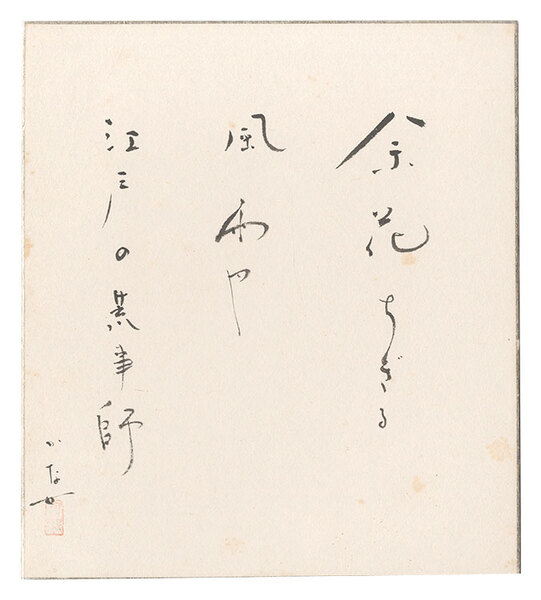 余花ちぎる
風雨や
江戸の荒事師
かな女